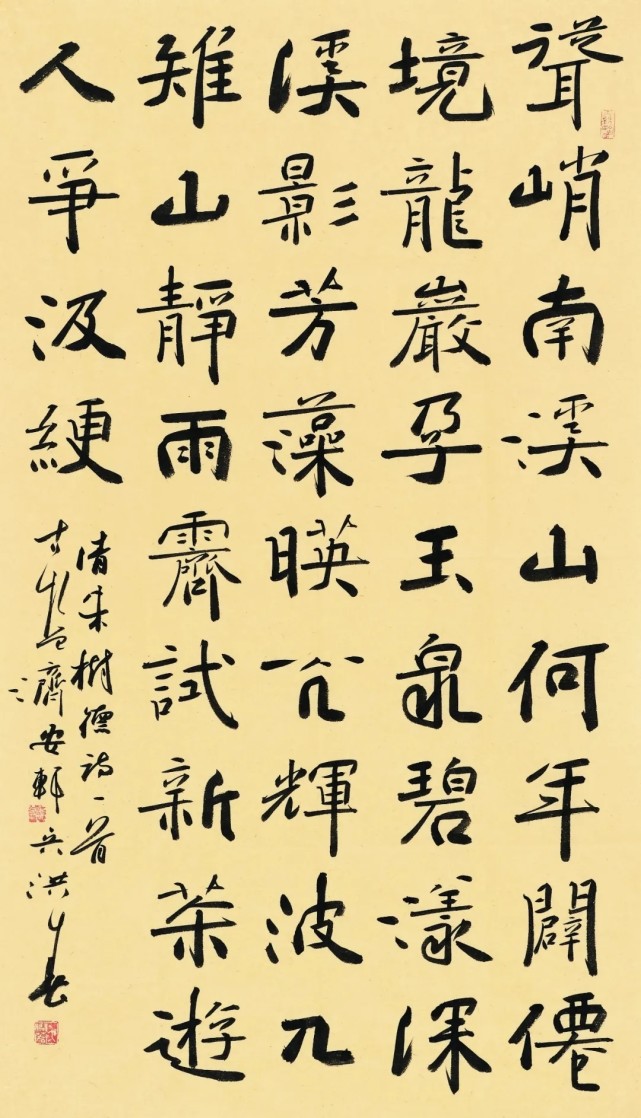 聳峭南溪山何年闢僊
境龍巖孕玉泉碧漾深
溪影芳藻暎輝波兀
雉山靜雨霽試新茶遊
人爭汲綆
清朱樹德詩一首
濟安軒 洪春